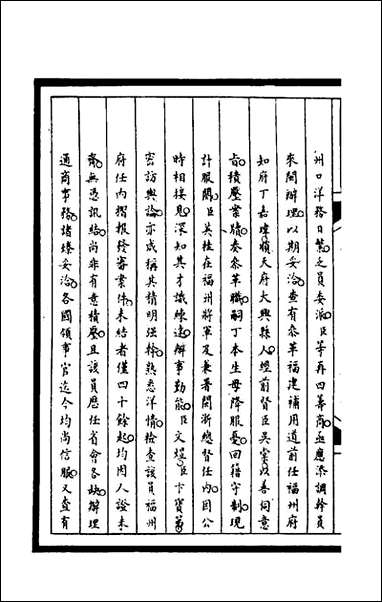 州口洋務日繁乏員委派臣等再四籌商亟應添調幹員
來閩辦理以期妥洽查有參革福建補用道前任福州府
知府丁嘉瑋順天府大興縣人經前督臣吳棠以善伺意
旨積壓案牘奏參革職嗣丁本生母降服憂回籍守制現
計服闋臣英桂在福州將軍及兼署閩浙總督任內因公
時相接見深知其才識練達辦事勤能臣文煜臣卞寶第
密訪輿論亦咸稱其精明強幹熟悉洋情檢查該員福州
府任內摺報發審案件未結者僅四十餘起均因人證未
齊無憑訊結尚非有意積壓且該員歷任省會各缺辦理
通商事務諸臻妥洽各國領事官迄今均尚信服又查有